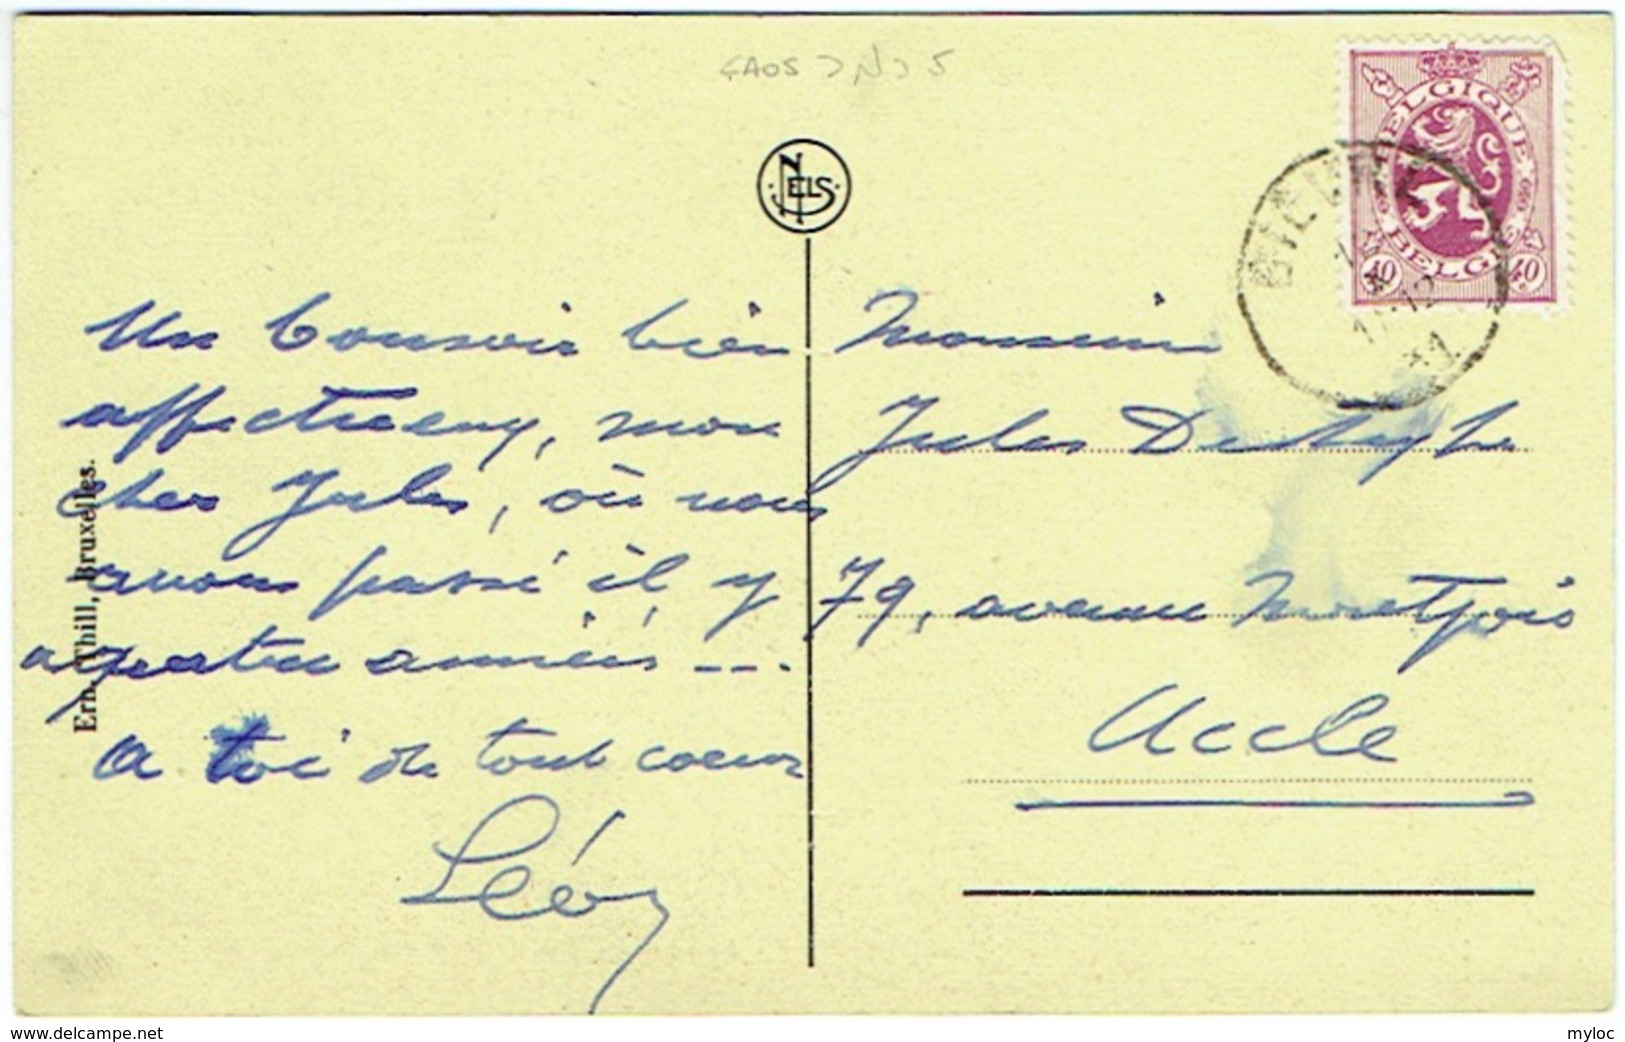 NELS
BELGIQUE
BELGIE
40 40
Ern. Thill, Bruxelles.
Un bonsoir bien
affectueux, mon
cher Jules, où nous
avons passé il y
a quatre années ---.
A toi de tout coeur
Léon
Monsieur
Jules
79, avenue Montjoie
Uccle
www.delcampe.net
myloc